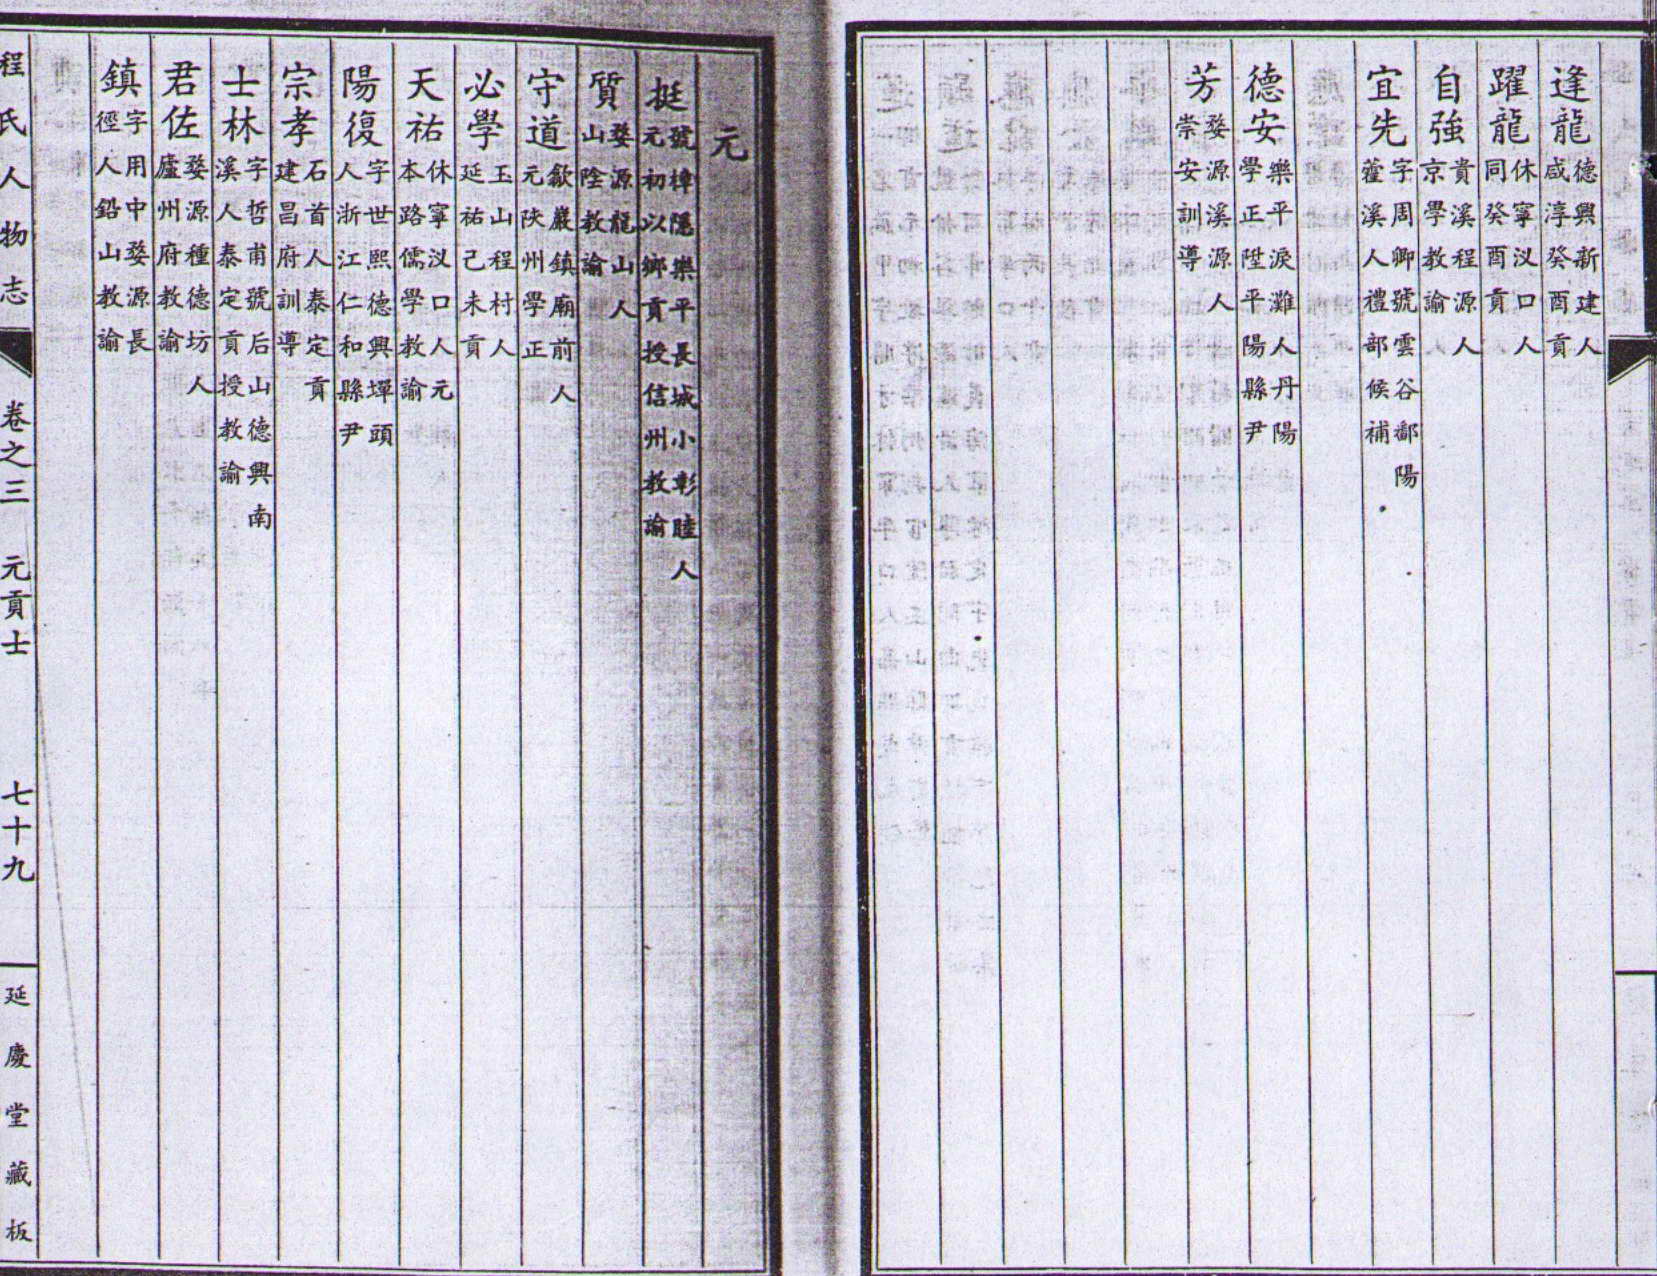 逢龍 德興新建人
咸淳癸酉貢
躍龍 休寧汊口人
同癸酉貢
自強 貴溪程源人
京學教諭
宜先 字周卿號雲谷鄱陽
蘿溪人禮部候補
德安 樂平淚灘人丹陽
學正陞平陽縣尹
芳 婺源溪源人
崇安訓導
元
挺 號樟隱樂平長城小彰睦人
元初以鄉貢授信州教諭
質 婺源龍山人
山陰教諭
守道 歙巖鎮廟前人
元陝州學正
必學 玉山程村人
延祐己未貢
天祐 休寧汊口人元
本路儒學教諭
陽復 字世熙德興墠頭
人浙江仁和縣尹
宗孝 石首人泰定貢
建昌府訓導
士林 字哲甫號后山德興南
溪人泰定貢授教諭
君佐 婺源種德坊人
廬州府教諭
鎮 字用中婺源長
徑人鉛山教諭
程氏人物志 卷之三 元貢士 七十九 延慶堂藏板